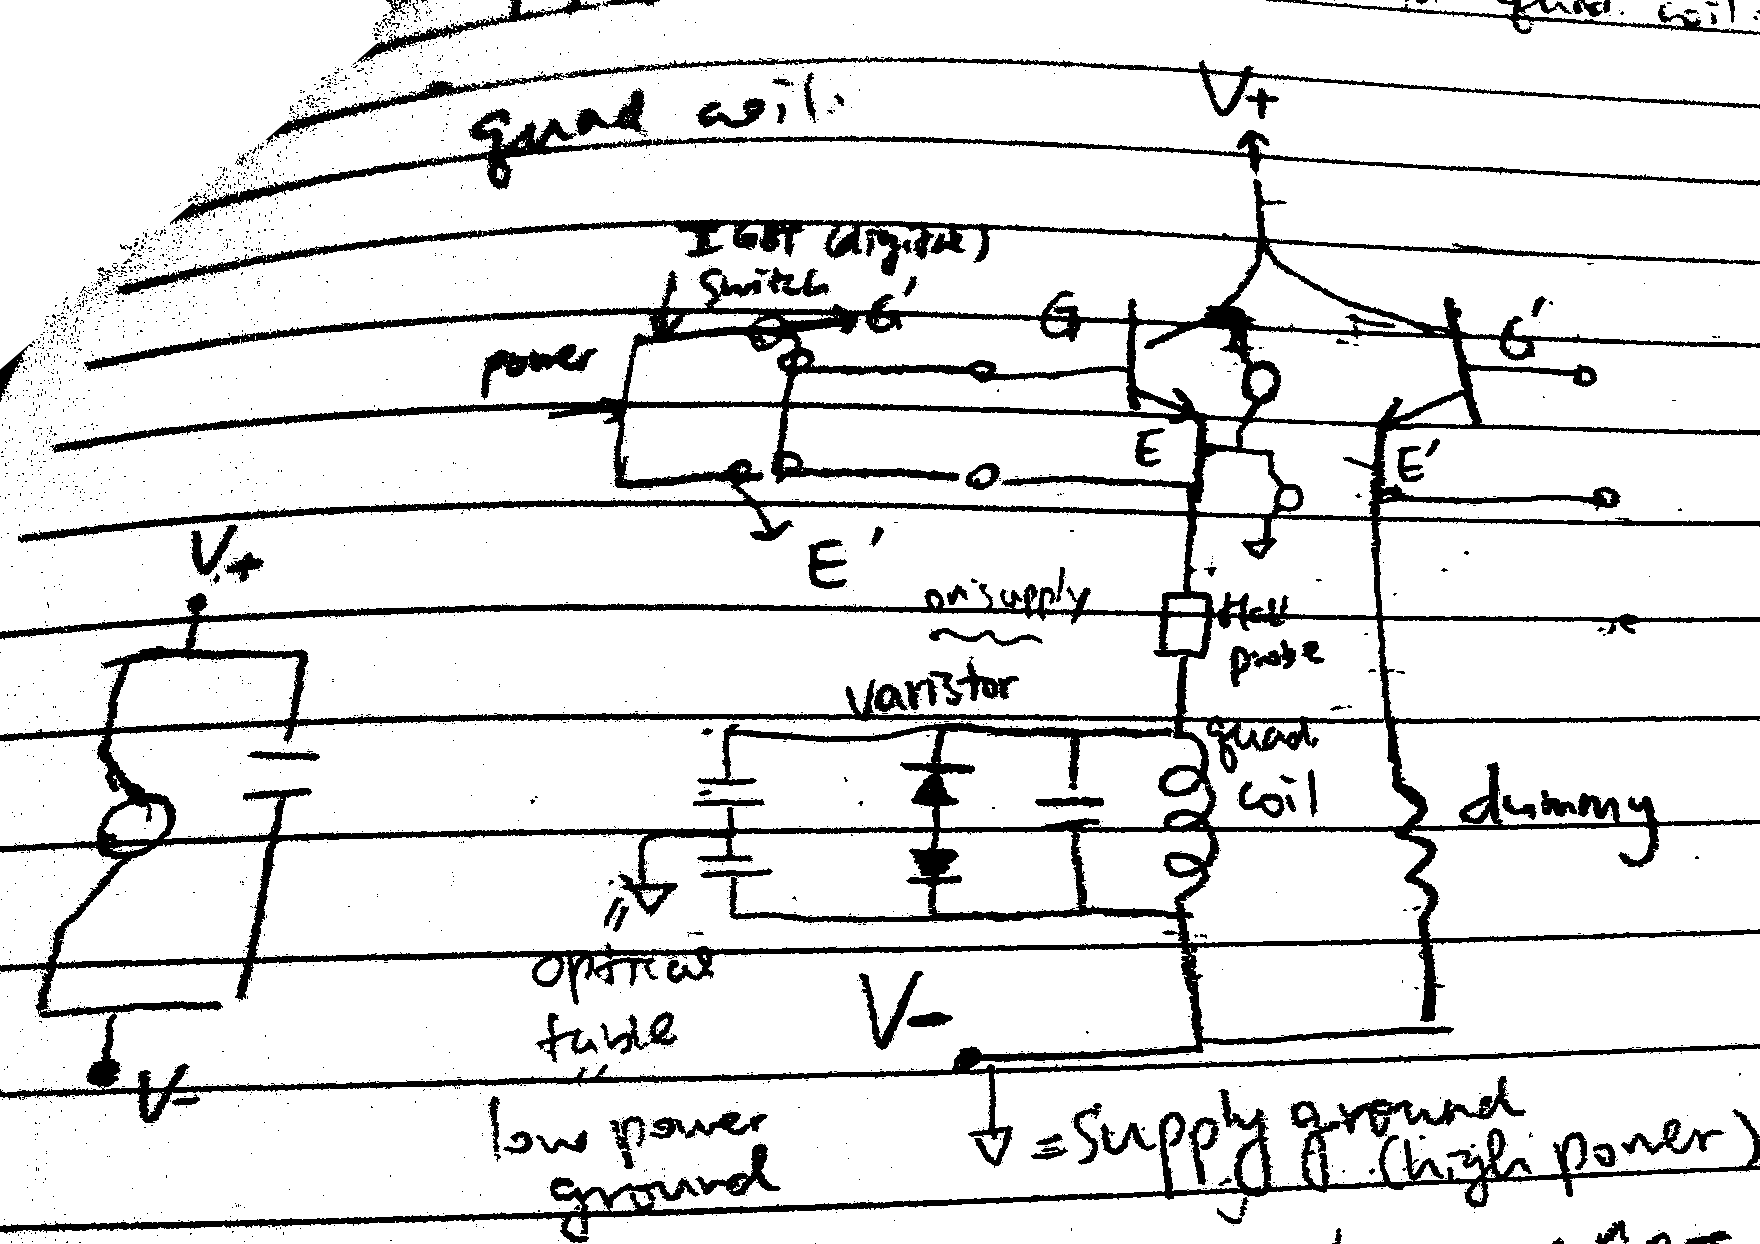 quad coil.
quad coil.
V+
IGBT (digital)
switch
G'
G
G'
power
E
E'
E'
V+
on supply
Hall
probe
varistor
quad
coil
dummy
optical
table
V-
V-
low power
ground
= supply ground
(high power)